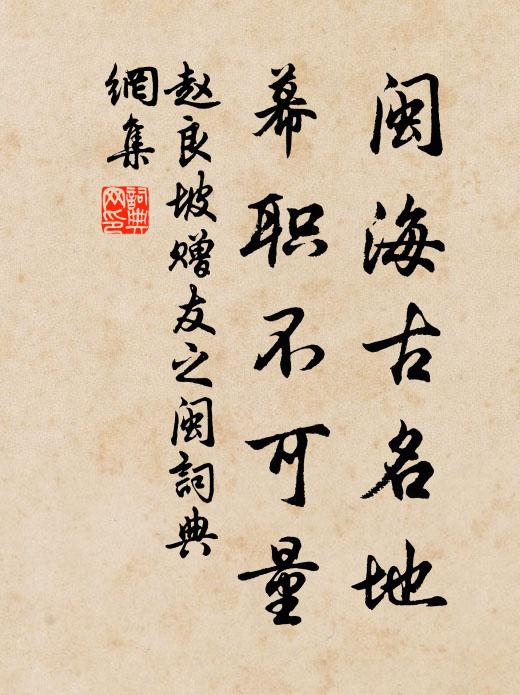 闽海古名地
幕职不可量
赵良坡赠友之闽詞典
網集
詞典
网印